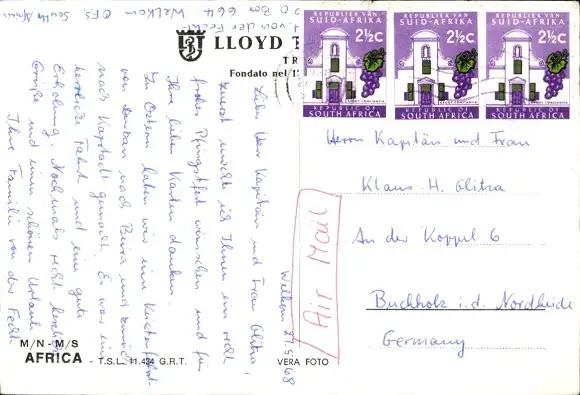 P.O. Box 664 Welkom OFS South Africa
LLOYD T
TR
Fondato nel 1
REPUBLIEK VAN
SUID-AFRIKA
2½c
GROOT CONSTANTIA
REPUBLIC OF
SOUTH AFRICA
REPUBLIEK VAN
SUID-AFRIKA
2½c
GROOT CONSTANTIA
REPUBLIC OF
SOUTH AFRICA
REPUBLIEK VAN
SUID-AFRIKA
2½c
GROOT CONSTANTIA
REPUBLIC OF
SOUTH AFRICA
Welkom 27.5.68
Lieber Herr Kapitän und Frau Olitza,
zuerst möchte ich Ihnen ein recht
frohes Pfingstfest wünschen und für
Ihre lieben Karten danken.
Zu Ostern haben wir eine Küstenfahrt
von Durban nach Beira und zurück
nach Kapstadt gemacht. Es war eine
herrliche Fahrt und eine gute
Erholung. Nochmals recht herzliche
Grüße und einen schönen Urlaub
Ihre Familie von der Fecht
Air Mail
Herrn Kapitän und Frau
Klaus H. Olitza
An der Koppel 6
Buchholz i.d. Nordheide
Germany
M/N - M/S
AFRICA - T.S.L. 11.434 G.R.T.
VERA FOTO